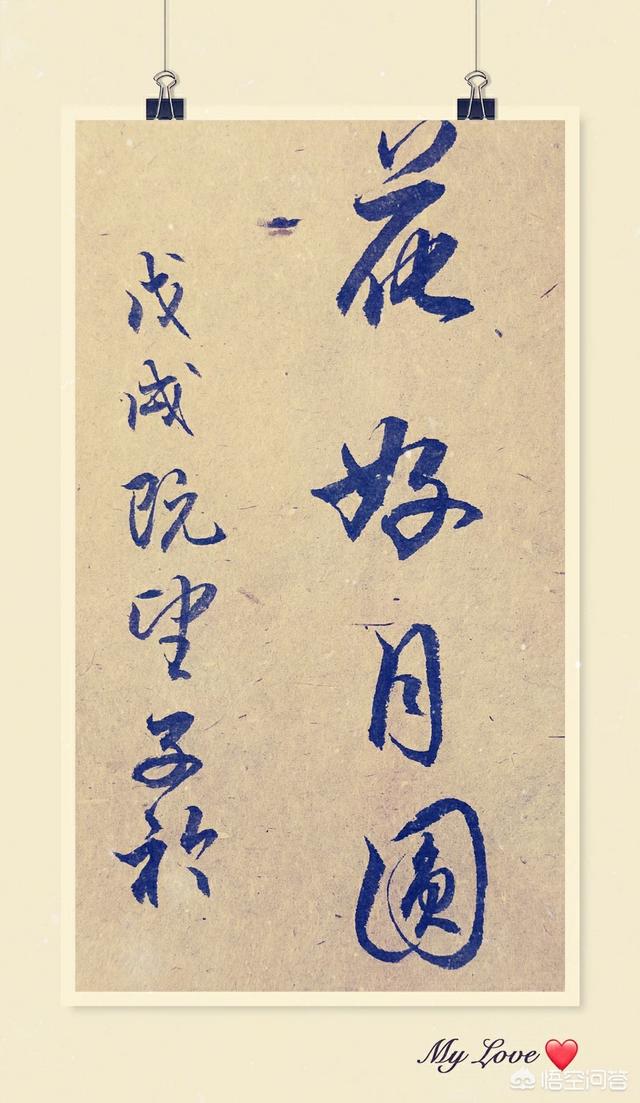 花好月圆
戊戌既望子衿
My Love
悟空问答